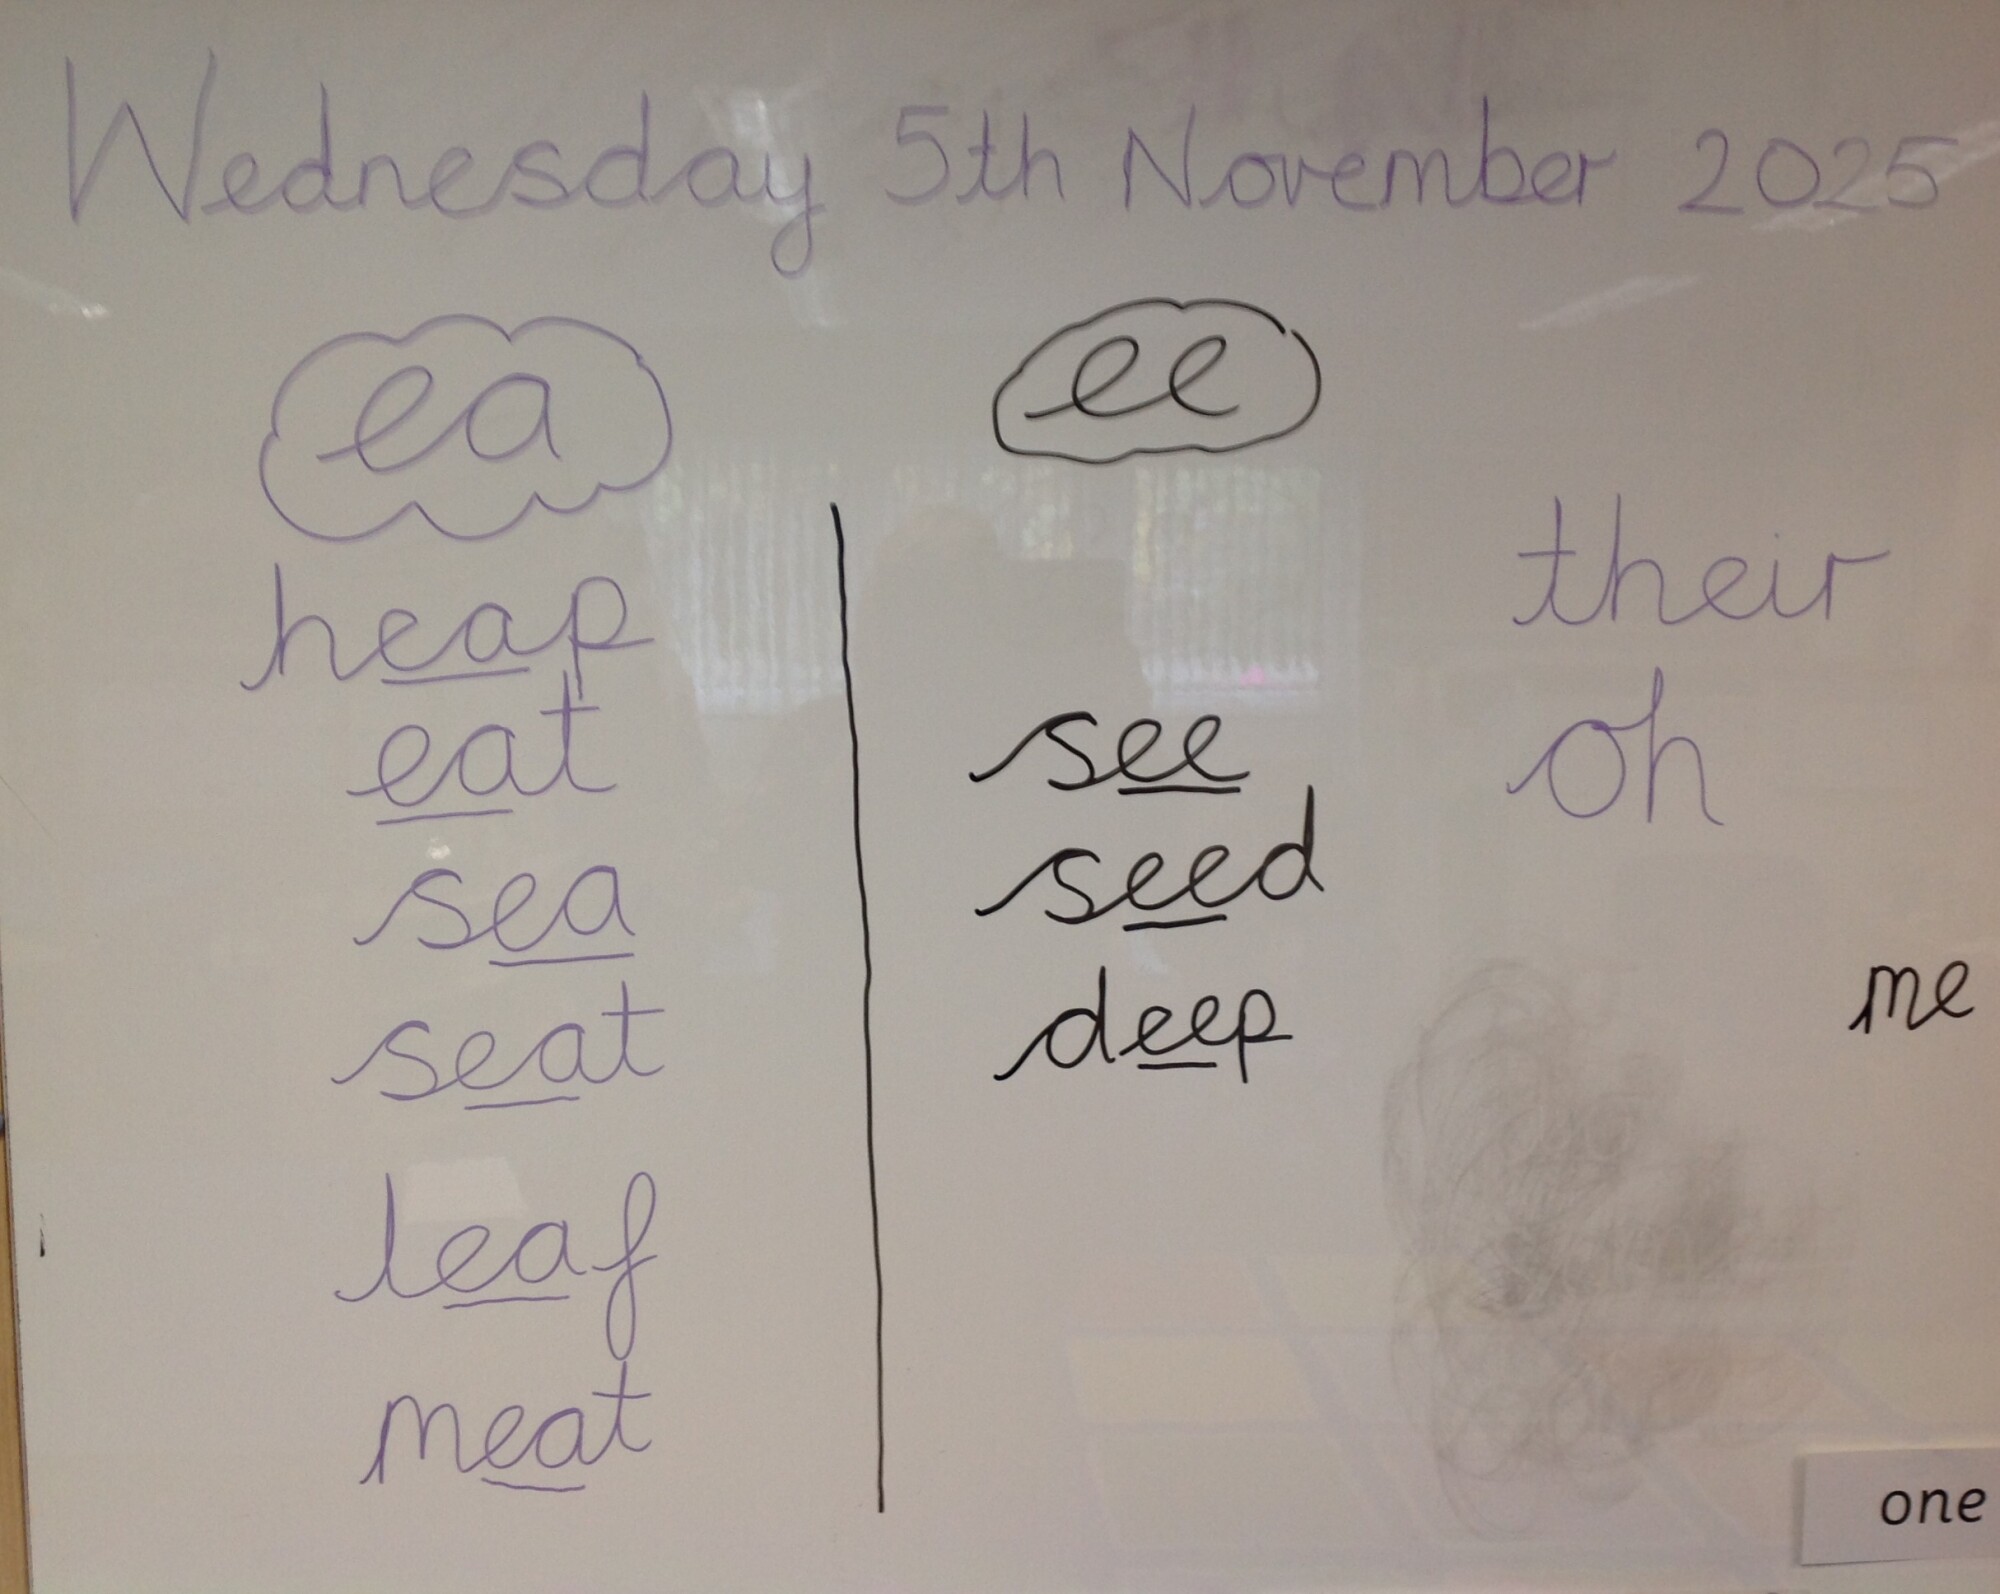 Wednesday 5th November 2025
ea
heap
eat
sea
seat
leaf
meat
ee
see
seed
deep
their
oh
me
one